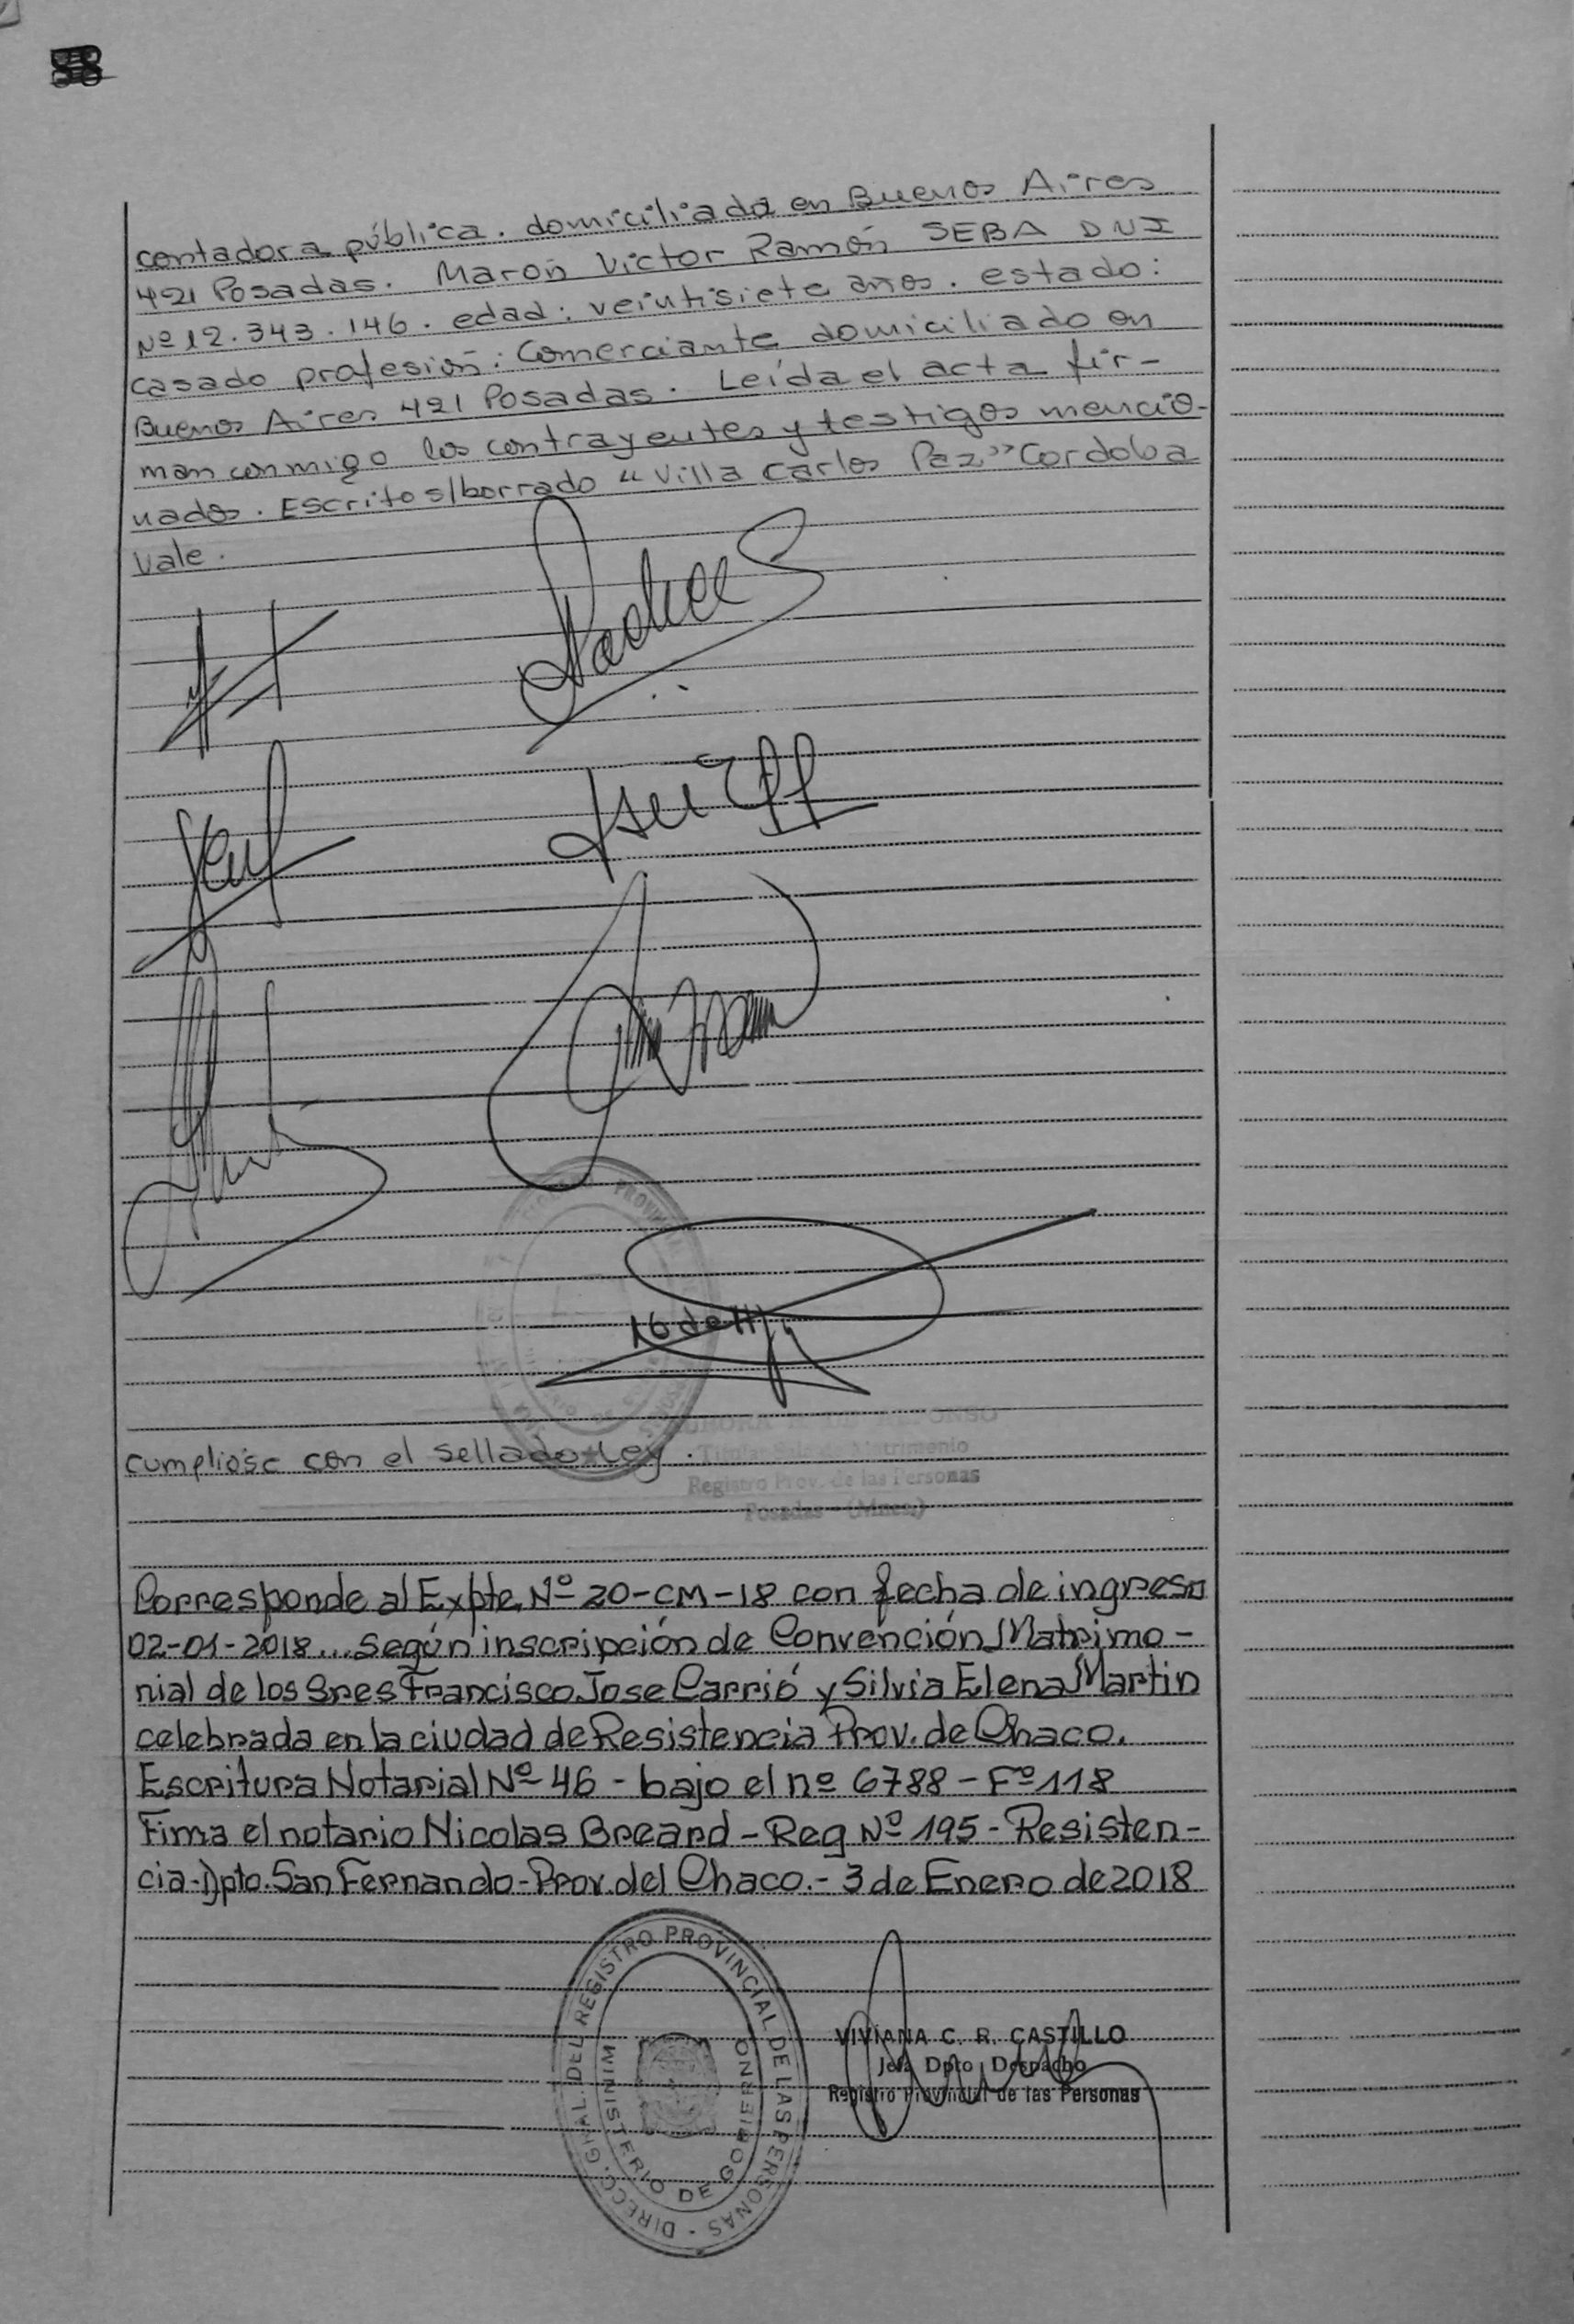 contadora pública. domiciliada en Buenos Aires
421 Posadas. Maron Victor Ramón SEBA DNI
Nº 12.343.146. edad: veintisiete años. estado:
casado profesión: Comerciante domiciliado en
Buenos Aires 421 Posadas. Leída el acta fir-
man conmigo los contrayentes y testigos mencio-
nados. Escrito s/borrado "Villa Carlos Paz" Cordoba
Vale.
cumpliose con el sellado Ley.
Titular Sala de Matrimonio
Registro Prov. de las Personas
Posadas - (Mnes.)
Corresponde al Expte. Nº 20-CM-18 con fecha de ingreso
02-01-2018... Según inscripción de Convención Matrimo-
nial de los Sres Francisco Jose Carrió y Silvia Elena Martin
celebrada en la ciudad de Resistencia Prov. de Chaco.
Escritura Notarial Nº 46 - bajo el nº 6788 - Fº 118
Fima el notario Nicolas Breard - Reg Nº 195 - Resisten-
cia - Dpto. San Fernando - Prov. del Chaco. - 3 de Enero de 2018
DIRECC. GRAL. DEL REGISTRO PROVINCIAL DE LAS PERSONAS
MINISTERIO DE GOBIERNO
VIVIANA C. R. CASTILLO
Jefa Dpto. Despacho
Registro Provincial de las Personas